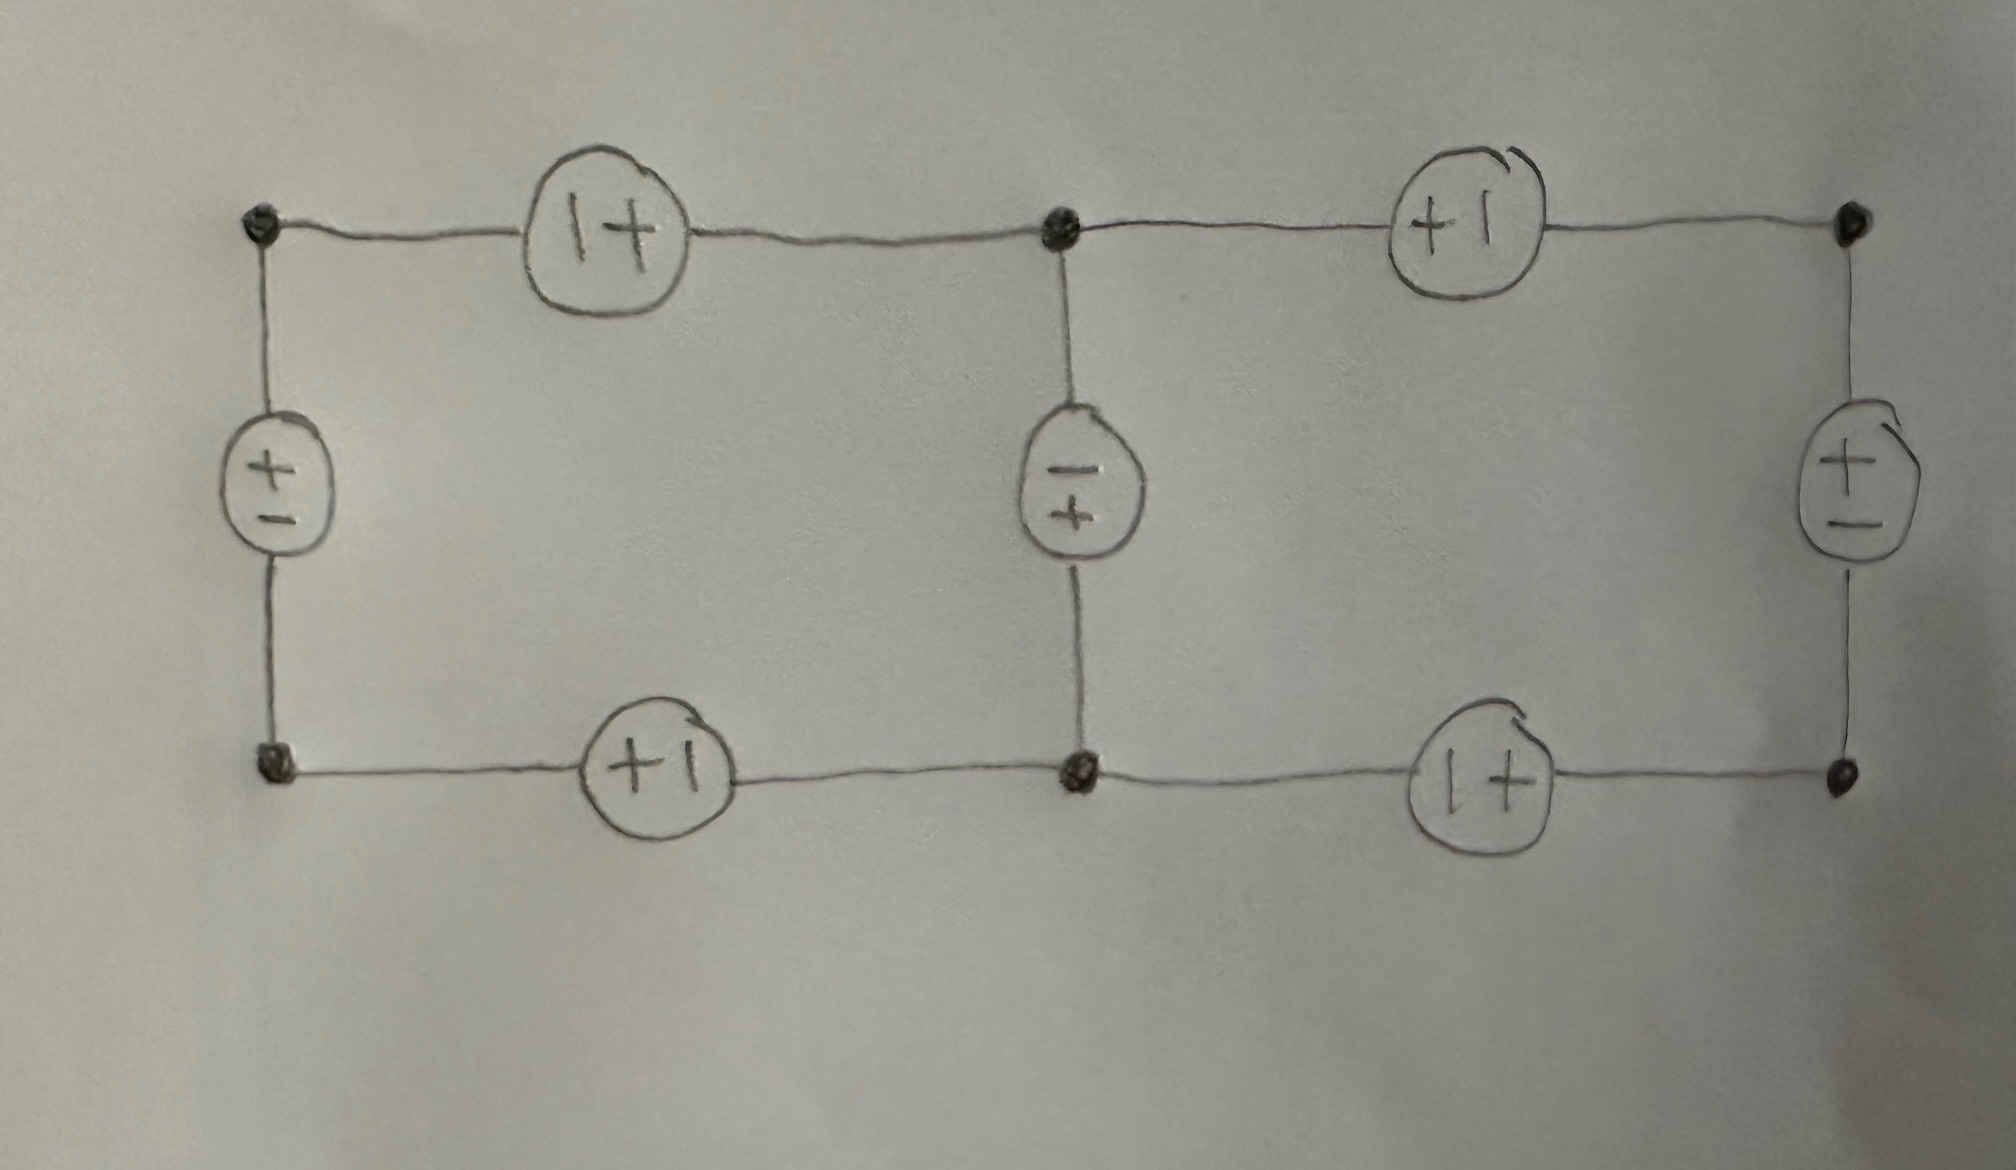 -+
+-
+
-
-
+
+
-
+-
-+